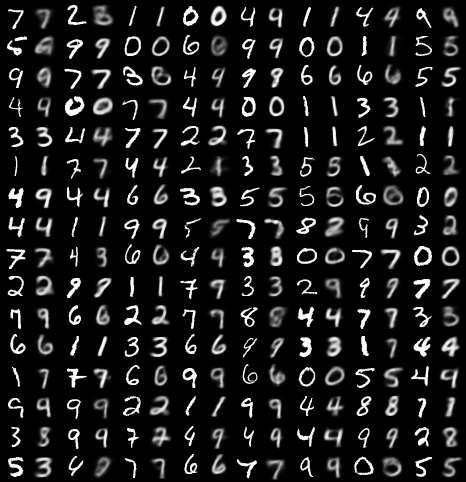 7 7 2 1 1 0 0 4 9 1 1 4 4 9 9
5 9 9 0 0 6 0 9 9 0 0 1 1 5 5
9 9 7 7 3 8 4 4 9 8 6 6 6 6 5 5
4 9 0 0 7 7 4 4 0 0 1 1 3 3 1 1
3 3 4 4 7 7 2 2 7 7 1 1 2 2 1 1
1 1 7 7 4 4 2 3 3 5 5 1 2 2
4 9 4 4 6 6 3 3 5 5 5 5 6 0 0 0
4 4 1 1 9 9 5 5 7 7 8 2 9 9 3 2
7 7 4 3 6 0 4 9 3 8 0 0 7 7 0 0
2 2 9 9 1 1 7 9 3 3 2 9 9 9 7 7
7 9 6 6 2 2 7 7 8 8 4 4 7 7 3 3
6 6 1 1 3 3 6 6 9 9 3 3 1 7 4 4
1 7 7 7 6 6 9 9 6 6 0 0 5 5 4 9
9 9 9 9 2 2 1 1 9 9 4 4 8 8 7 7
3 8 9 9 7 7 4 9 4 9 4 4 9 9 2 8
5 3 4 7 7 6 6 7 7 9 9 0 0 5 5